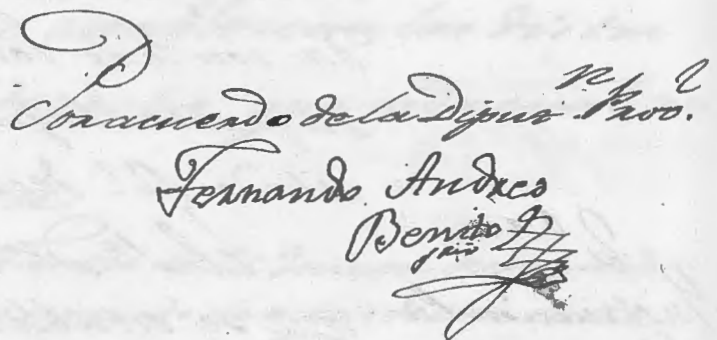 Por acuerdo de la Diput.n Prov.l
Fernando Andres
Benito
srio